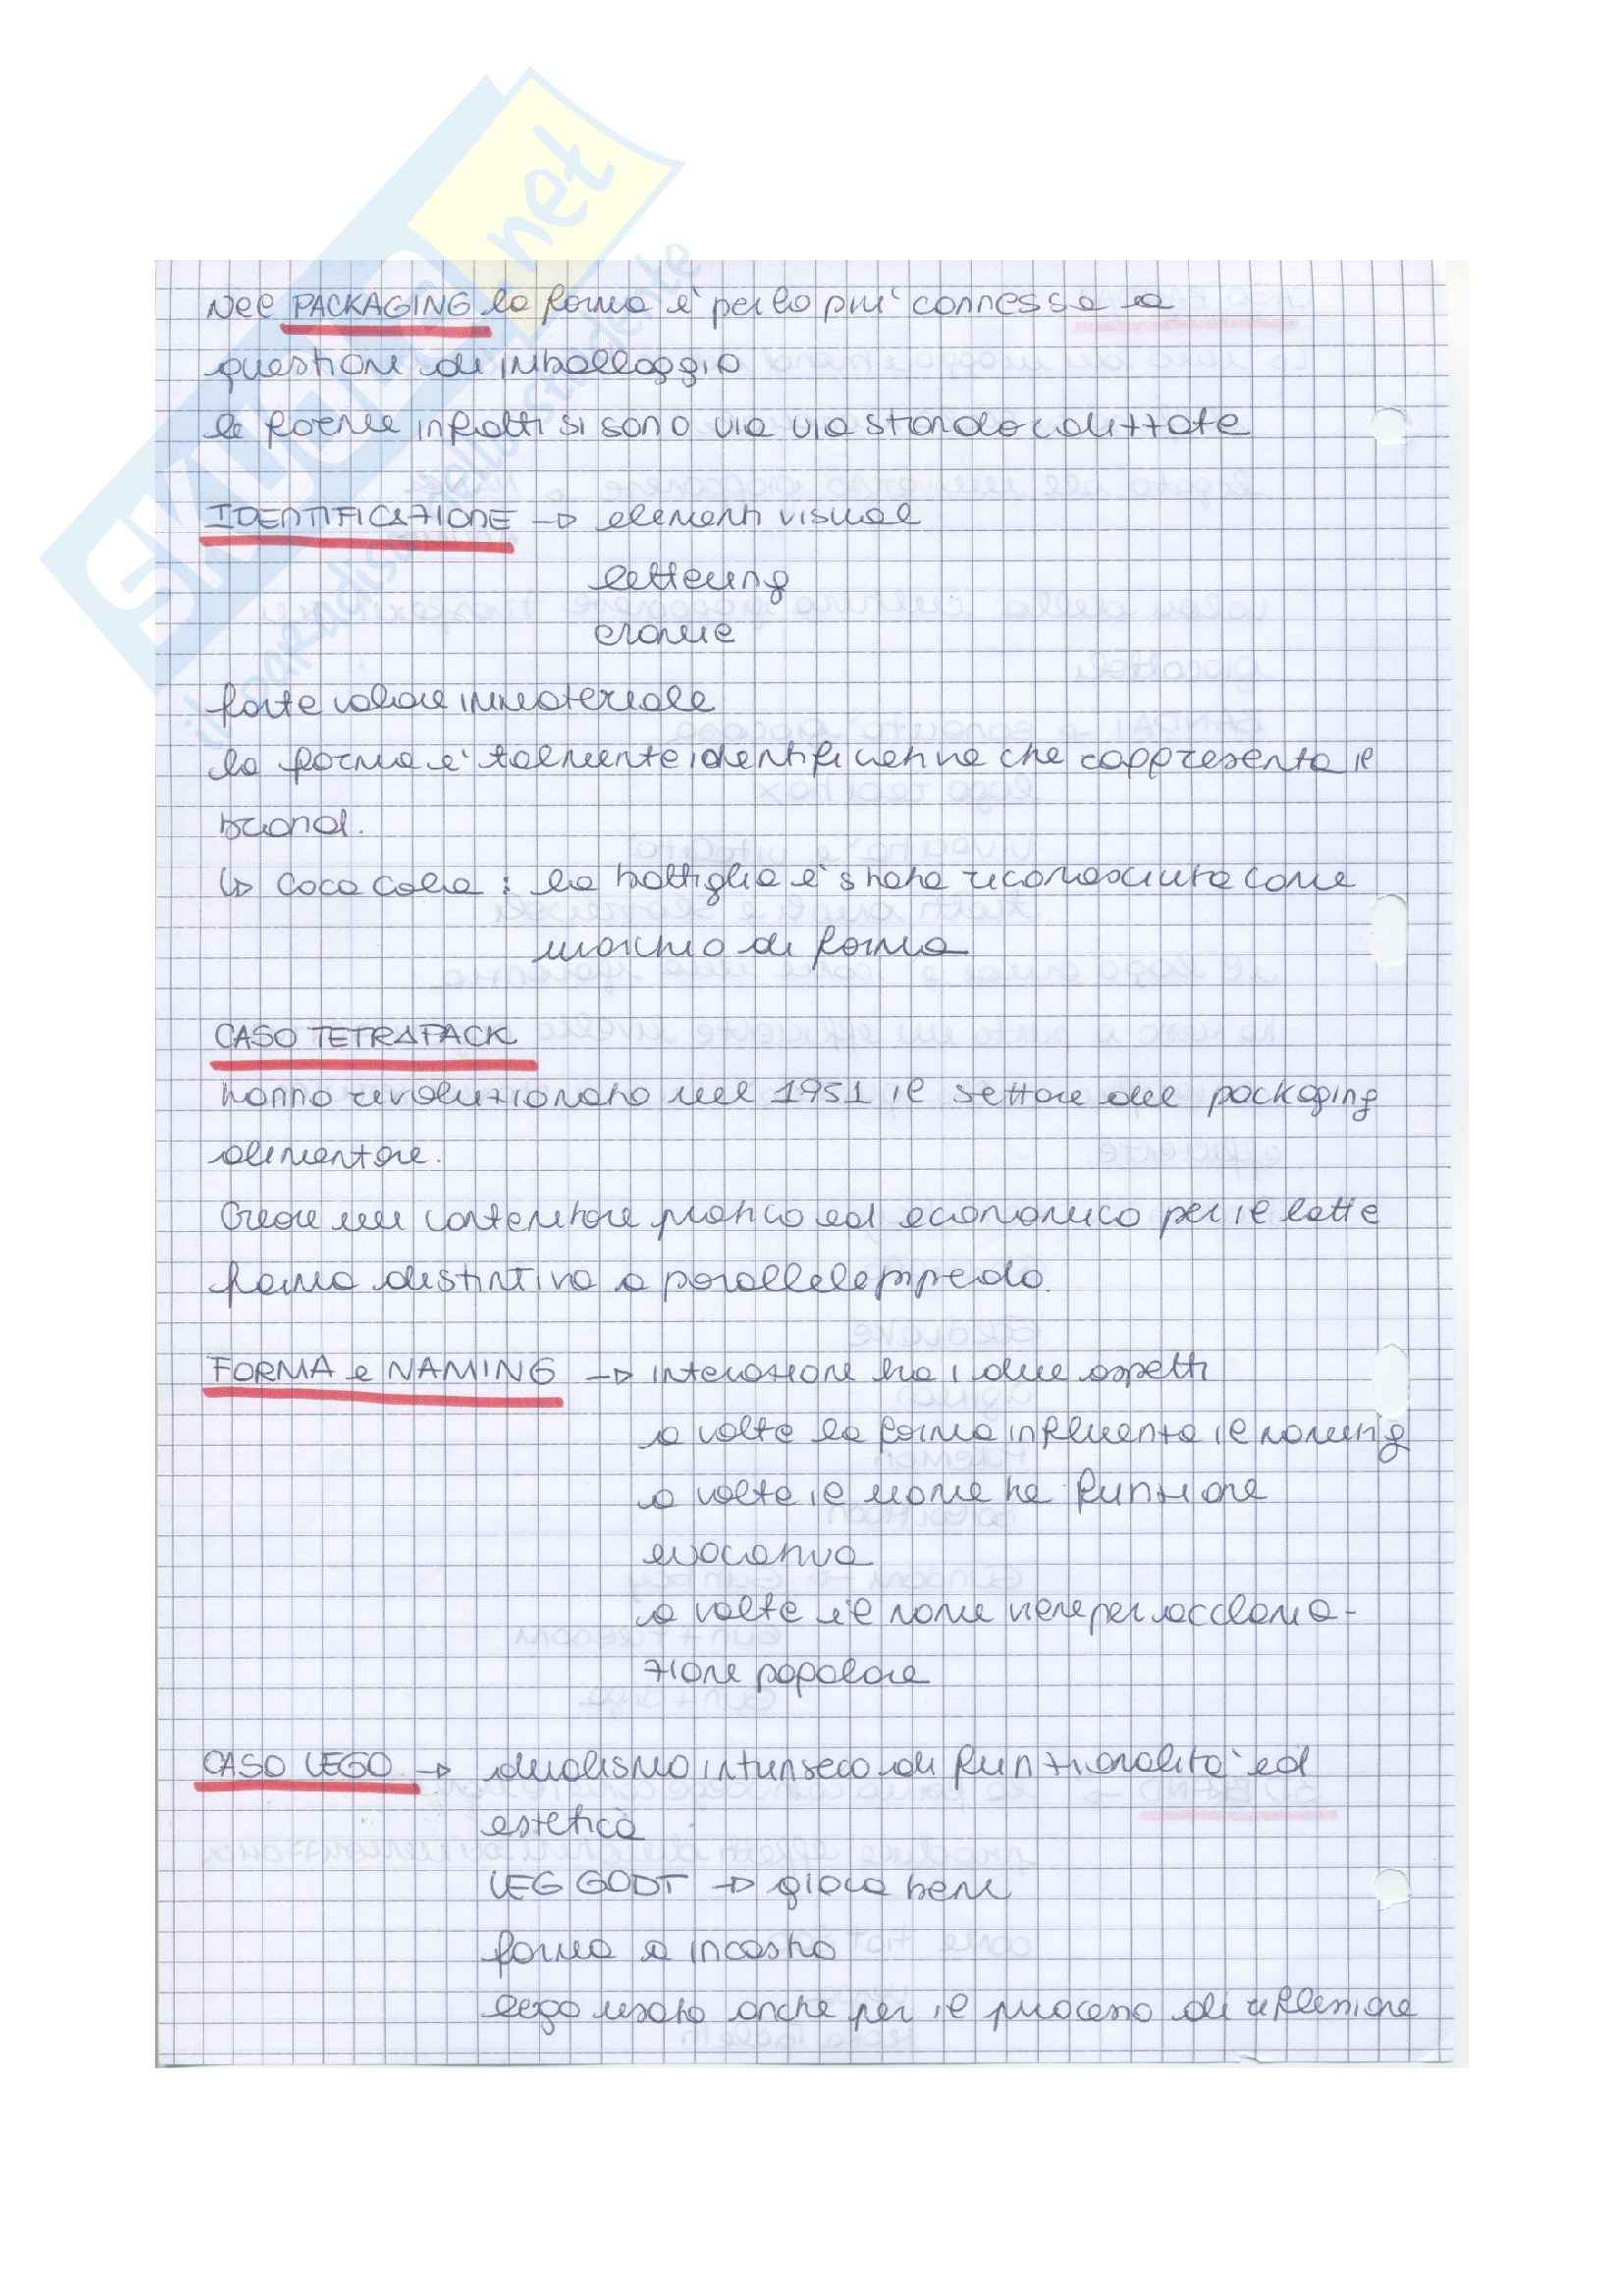 Nel PACKAGING la forma è per lo più connessa a
questioni di imballaggio
le forme infatti si sono via via standardizzate
IDENTIFICAZIONE → elementi visual
lettering
cromie
forte valore immateriale
la forma è talmente identificativa che rappresenta il
brand.
↳ Coca Cola : la bottiglia è stata riconosciuta come
marchio di forma
CASO TETRAPACK
hanno rivoluzionato nel 1951 il settore del packaging
alimentare.
Creare un contenitore pratico ed economico per il latte
forma distintiva a parallelepipedo.
FORMA e NAMING → interazione tra i due aspetti
a volte la forma influenza il naming
a volte il nome ha funzione
evocativa
a volte il nome viene per acclama-
zione popolare
CASO LEGO → dualismo intrinseco di funzionalità ed
estetica
LEG GODT → gioca bene
forma a incastro
lego usato anche per il processo di riflessione
SKUOLA.net
il paradiso dello studente